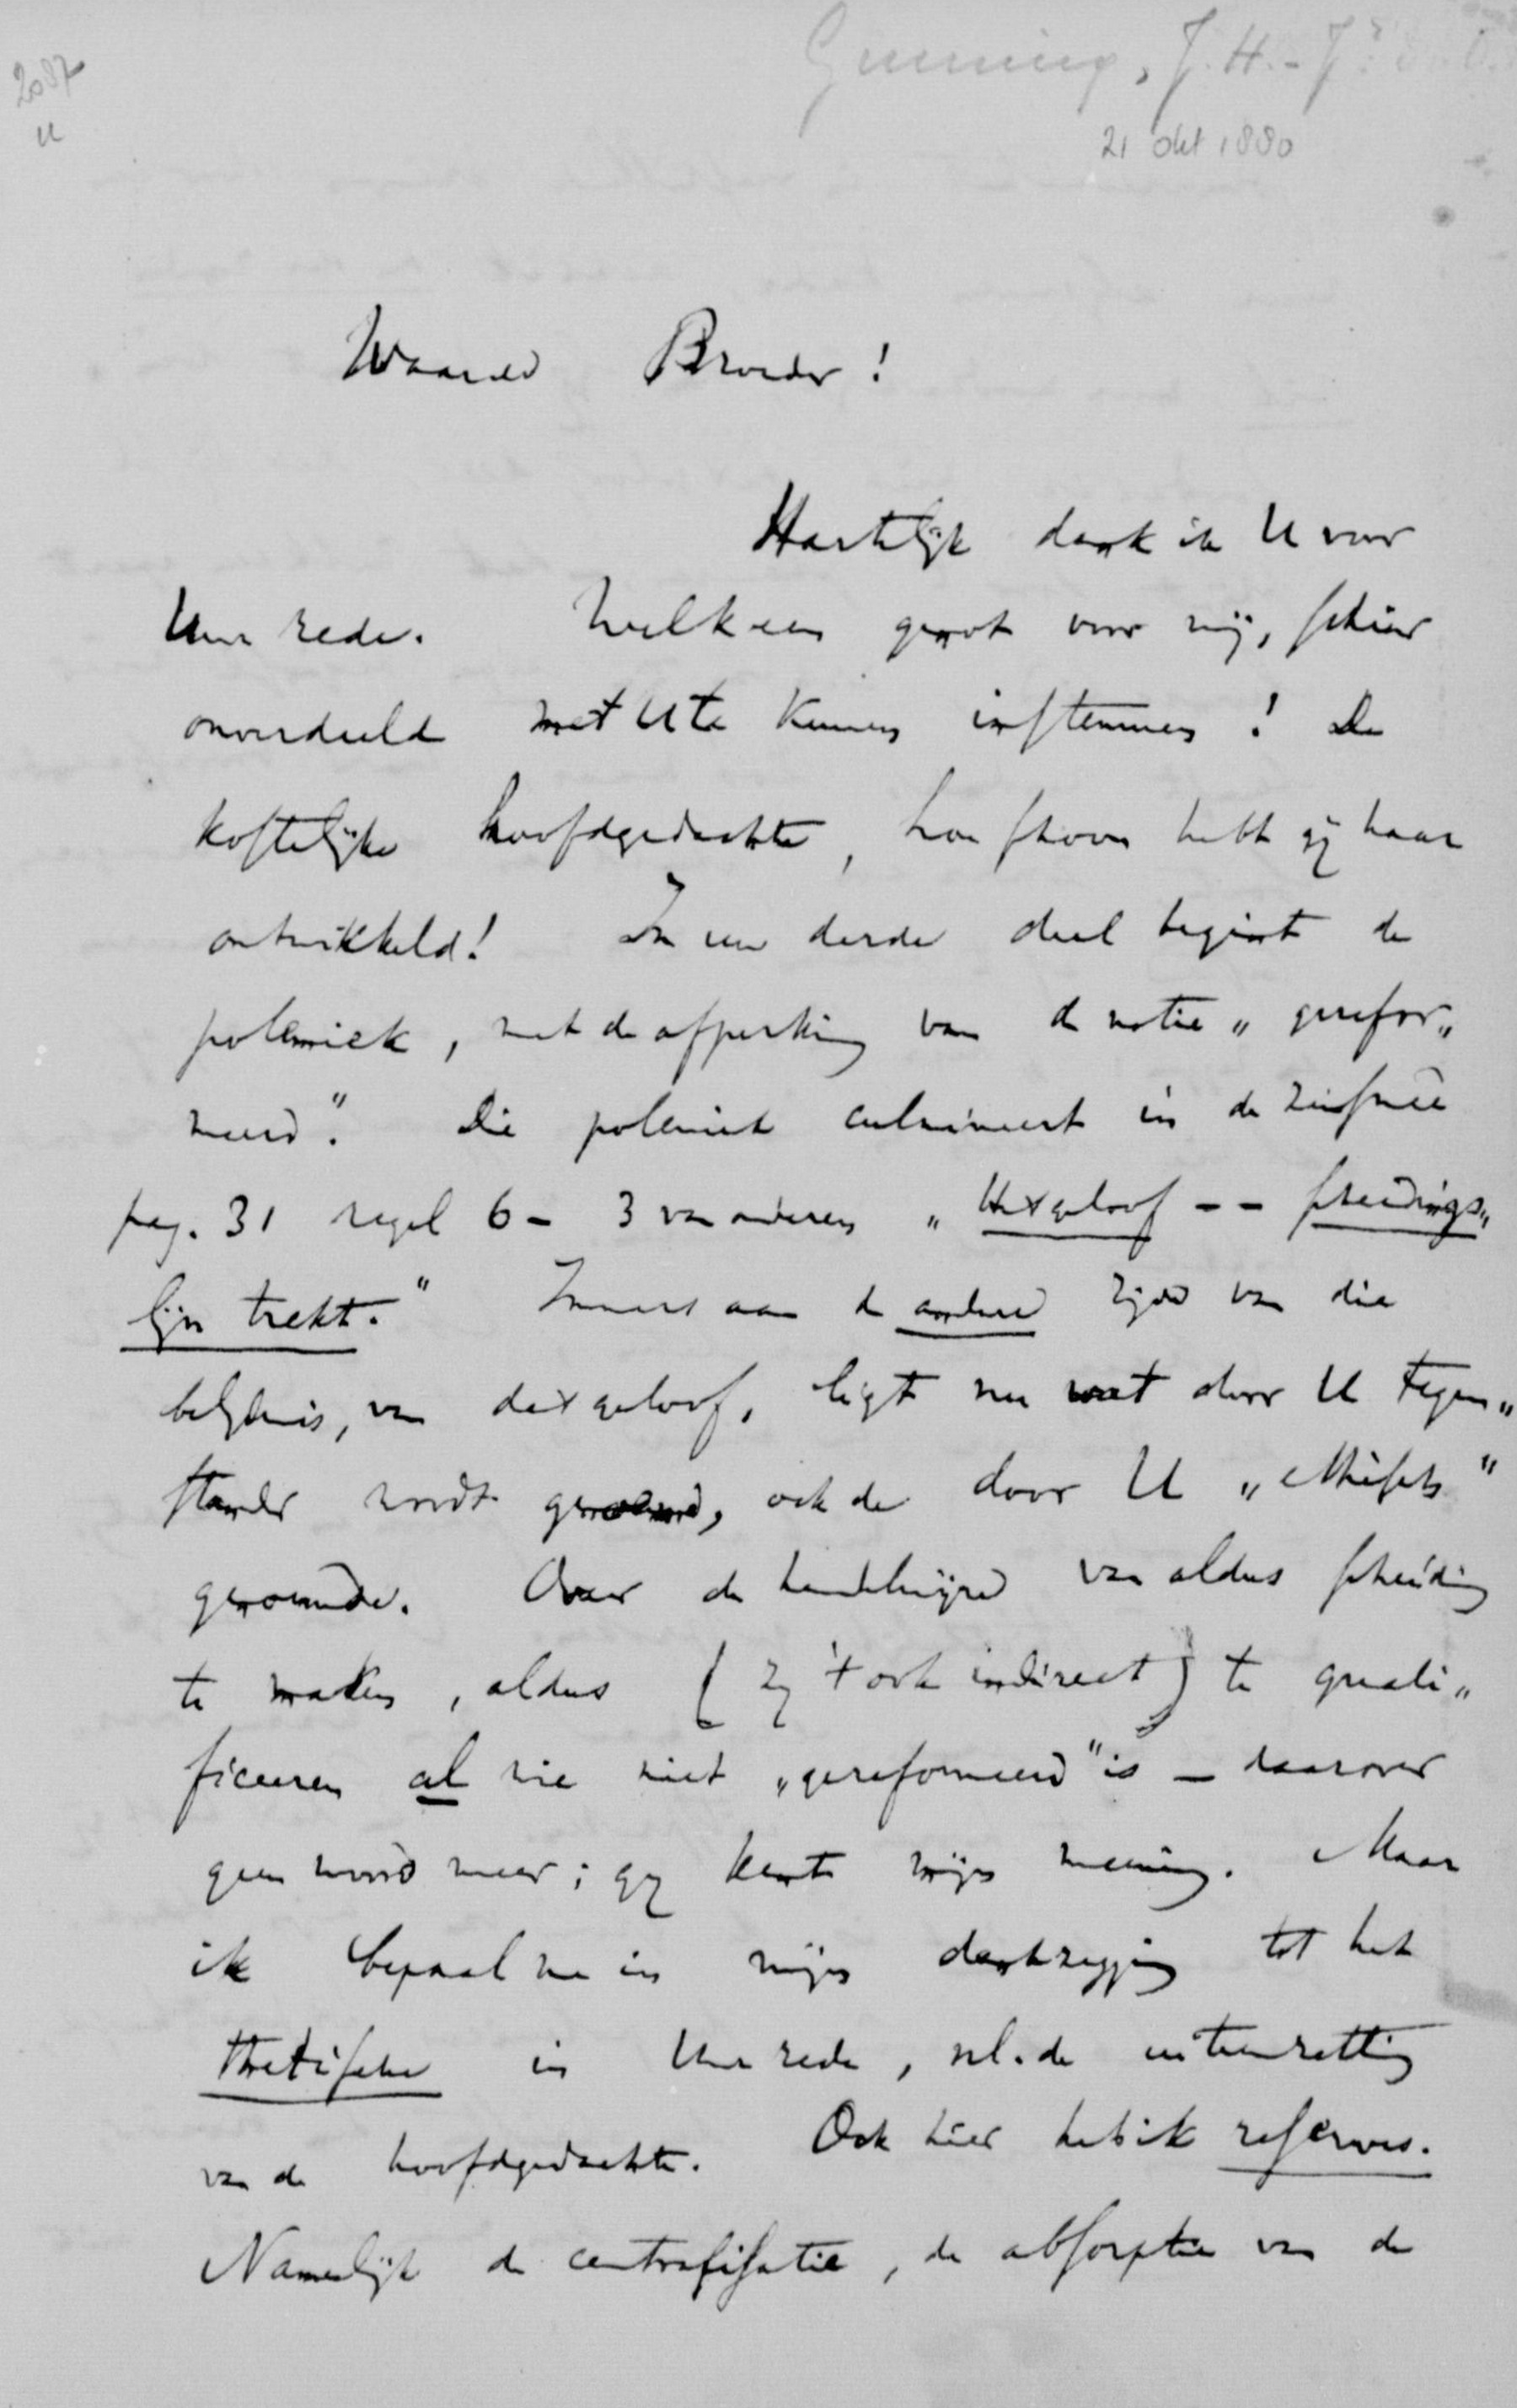 2087
Gunning, J. H. - Jr
21 okt 1880
Waarde Broeder!
Hartelijk dank ik U voor
Uwe rede. Welk een genot voor mij, schier
onverdeeld met U te kunnen instemmen! De
kostelijke hoofdgedachte, hoe schoon hebt gij haar
ontwikkeld! In uw derde deel begint de
polemiek, met de afperking van de notie „gerefor„
meerd". Die polemiek culmineert in de zinsnee
pag. 31 regel 6 - 3 van onderen „Het geloof -- scheidings„
lijn trekt." Immers aan de andere zijde van die
belijdenis, van dat geloof, ligt nu wat door U tegen„
stander wordt genoemd, ook de door U „ethisch"
genoemde. Over de handelwijze van aldus scheiding
te maken, aldus (zij 't ook indirect) te quali„
ficeeren al wie niet „gereformeerd" is – daarover
geen woord meer; gij kent mijn meening. Maar
ik bepaal me in mijn dankzegging tot het
thetische in Uwe rede, nl. de uiteenzetting
van de hoofdgedachte. Ook hier heb ik reserves.
Namelijk de centralisatie, de absorptie van de